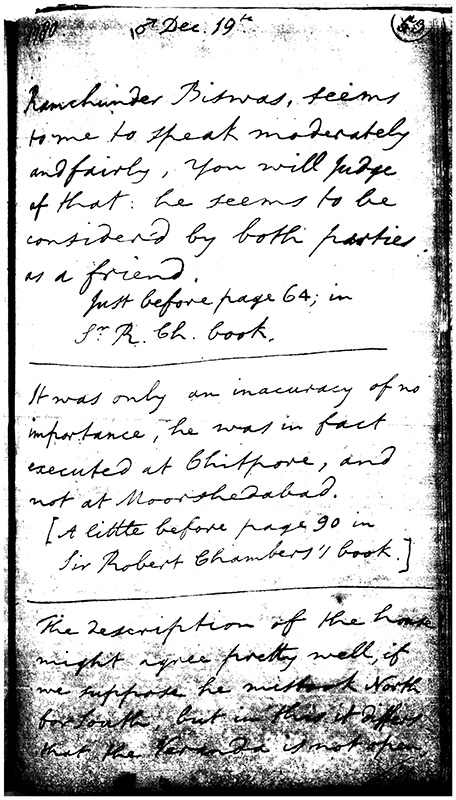 1780 10th Dec. 19th 53
Ramchunder Biswas, seems
to me to speak moderately
and fairly, You will Judge
of that: he seems to be
consider'd by both parties
as a friend.
Just before page 64; in
Sr R. Ch. book.
It was only an inacuracy of no
importance, he was in fact
executed at Chitpore, and
not at Moorshedabad.
[A little before page 90 in
Sir Robert Chambers's book.]
The description of the house
might agree pretty well, if
we suppose he mistook North
for South. but in this it differs
that the Veranda is not open